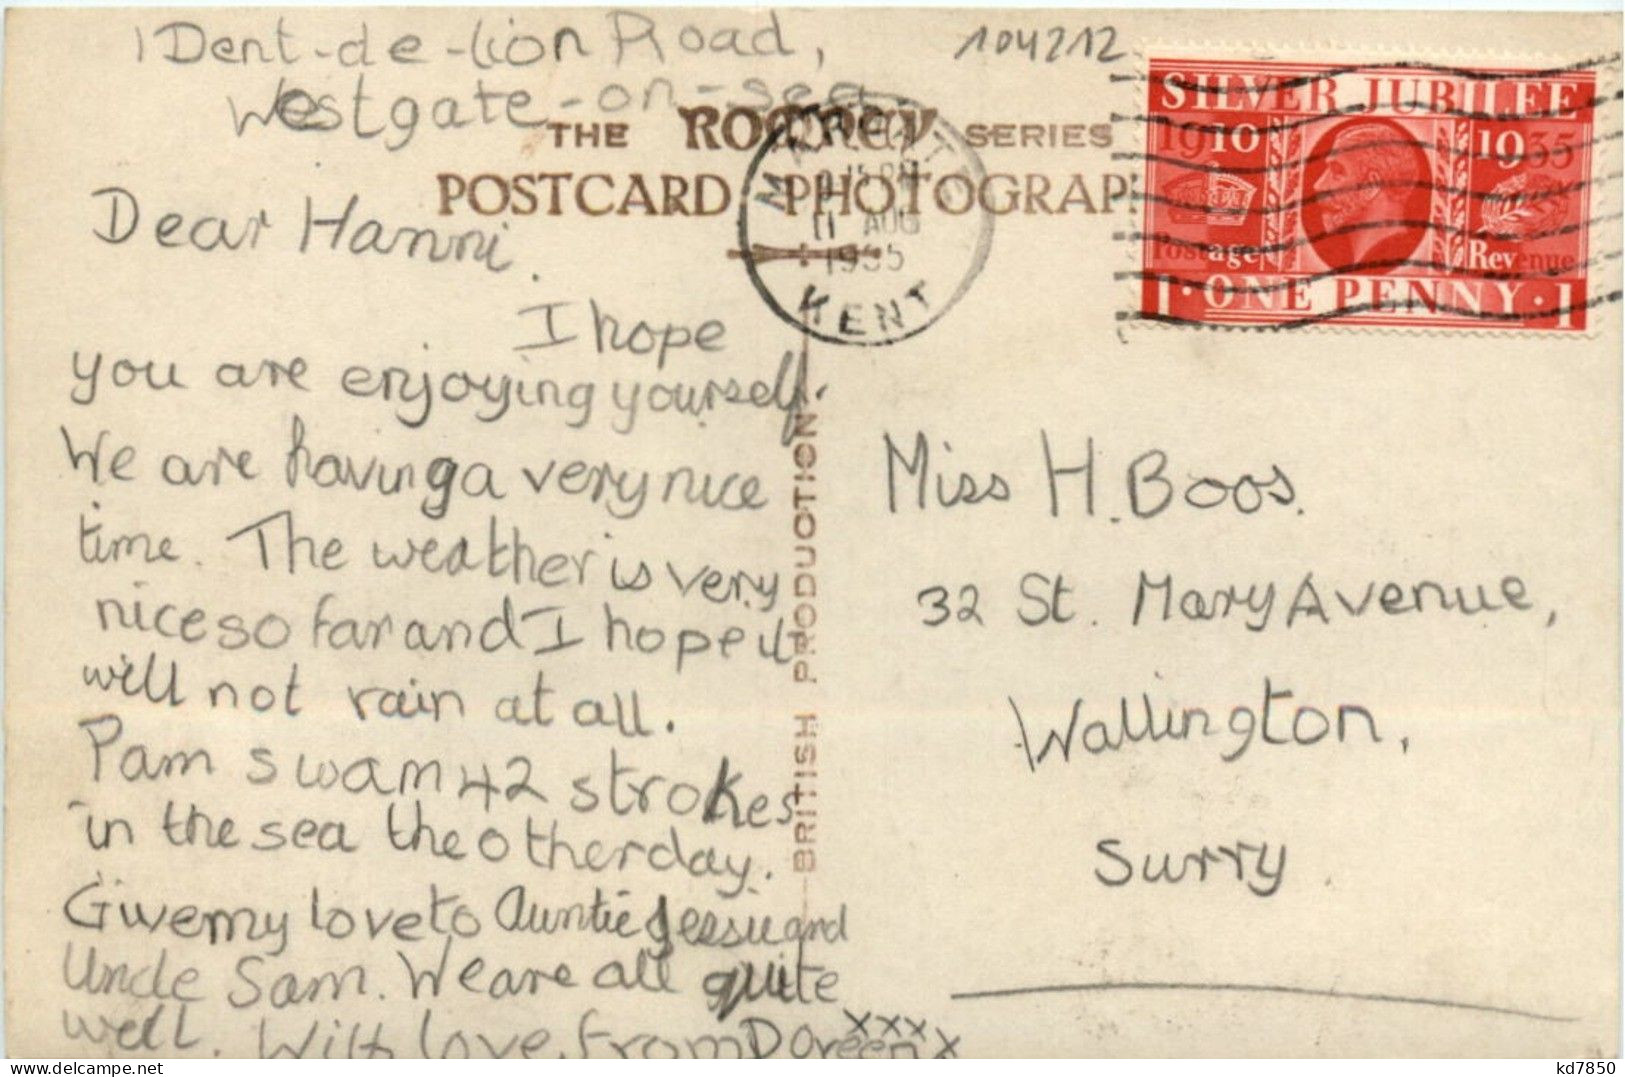 1 Dent-de-lion Road,
Westgate-on-sea
104212
THE ROMNEY SERIES
POSTCARD PHOTOGRAP
MARGATE
11 AUG
1935
KENT
SILVER JUBILEE
1910 1935
Postage Revenue
1 · ONE PENNY · 1
Dear Hanni.
I hope
you are enjoying yourself.
We are having a very nice
time. The weather is very
nice so far and I hope it
will not rain at all.
Pam swam 42 strokes
in the sea the other day.
Give my love to Auntie Jessie and
Uncle Sam. We are all quite
well. With love from Doreen
xxxx
BRITISH PRODUCTION
Miss H. Boos.
32 St. Mary Avenue,
Wallington,
Surry
kd7850